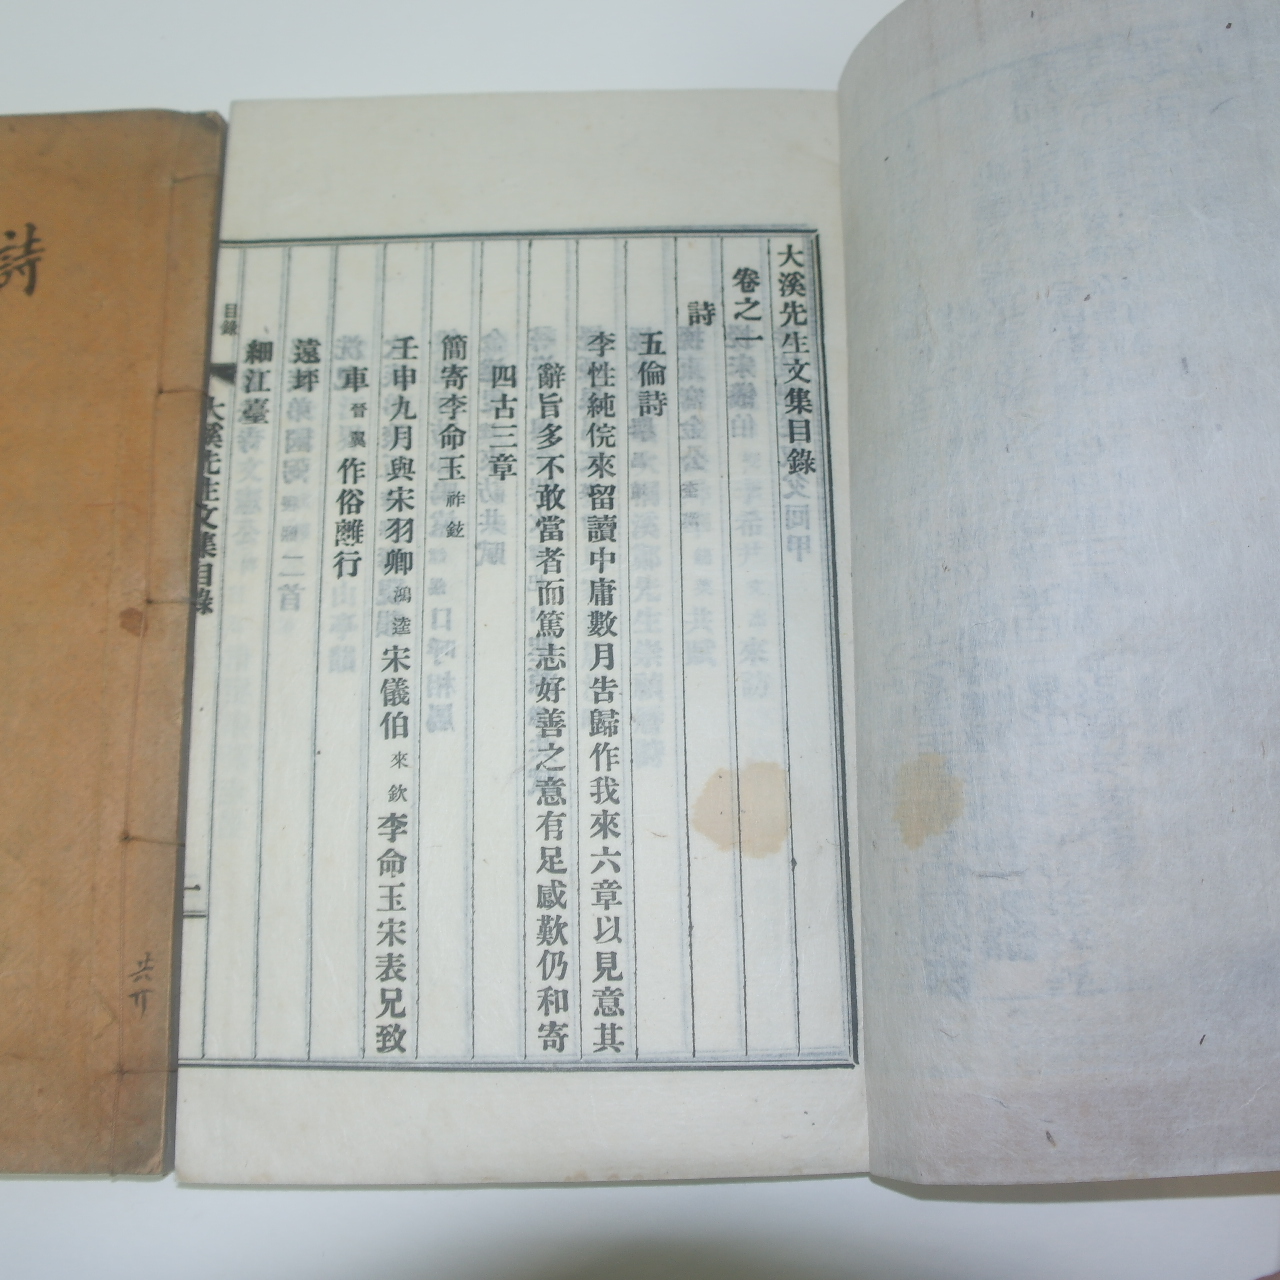 大溪先生文集目錄
卷之一
詩
五倫詩
李性純倥來留讀中庸數月告歸作我來六章以見意其
辭旨多不敢當者而篤志好善之意有足感歎仍和寄
四古三章
簡寄李命玉祚鉉
壬申九月與宋羽卿鴻逵宋儀伯來欽李命玉宋表兄致
車晉翼作俗離行
遠坪
細江臺
目錄
大溪先生文集目錄
一
詩
共六